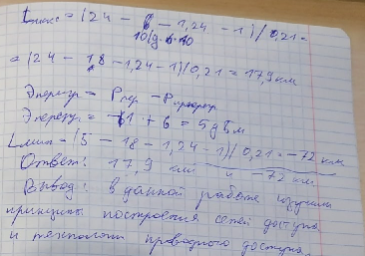 Lмакс = (24 - 6 - 1,24 - 1) / 0,21 =
10lg
= (24 - 18 - 1,24 - 1)/0,21 = 17,9 км
Эперегр = Pпер -
Эперегр = -1 + 6 = 5 дБм
Lмин = (5 - 18 - 1,24 - 1)/0,21 = -72 км
Ответ: 17,9 км и -72 км
Вывод: в данной работе изучили
принципы построения сетей доступа
и технологии проводного доступа.